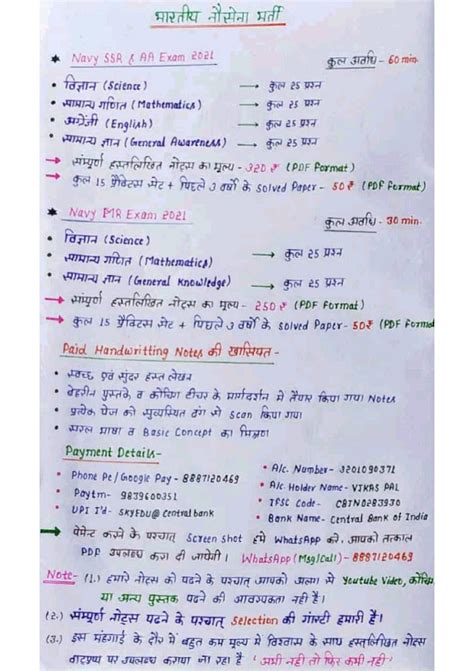 भारतीय नौसेना भर्ती
* Navy SSR & AA Exam 2021 कुल अवधि - 60 min.
• विज्ञान (Science) → कुल 25 प्रश्न
• सामान्य गणित (Mathematics) → कुल 25 प्रश्न
• अंग्रेजी (English) → कुल 25 प्रश्न
• सामान्य ज्ञान (General Awareness) → कुल 25 प्रश्न
→ संपूर्ण हस्तलिखित नोट्स का मूल्य - 320 ₹ (PDF Format)
→ कुल 15 प्रैक्टिस सेट + पिछले 3 वर्षों के Solved Paper - 50 ₹ (PDF Format)
* Navy MR Exam 2021 कुल अवधि - 30 min.
• विज्ञान (Science) → कुल 25 प्रश्न
• सामान्य गणित (Mathematics) → कुल 25 प्रश्न
• सामान्य ज्ञान (General Knowledge) → कुल 25 प्रश्न
→ संपूर्ण हस्तलिखित नोट्स का मूल्य - 250 ₹ (PDF Format)
→ कुल 15 प्रैक्टिस सेट + पिछले 3 वर्षों के Solved Paper - 50 ₹ (PDF Format)
Paid Handwritting Notes की खासियत -
• स्वच्छ एवं सुंदर हस्त लेखन
• बेहतरीन पुस्तके व कोचिंग टीचर के मार्गदर्शन में तैयार किया गया Notes
• प्रत्येक पेज को सुव्यस्थित ढंग से Scan किया गया
• सरल भाषा व Basic Concept का मिश्रण
Payment Details-
• Phone Pe/Google Pay - 8887120469
• Paytm- 9839600351
• UPI I'd - SKYEDU@Centralbank
• A/c. Number - 3201090371
• A/c Holder Name - VIKAS PAL
• IFSC Code - CBIN0283930
• Bank Name - Central Bank of India
→ पेमेन्ट करने के पश्चात् Screen Shot हमे WhatsApp करें, आपको तत्काल
PDF उपलब्ध करा दी जायेगी। WhatsApp (Msg/Call)- 8887120469
Note- (1.) हमारे नोट्स को पढने के पश्चात् आपको अलग से Youtube Video, कोचिंग
या अन्य पुस्तक पढने की आवश्यकता नहीं है।
(2.) संपूर्ण नोट्स पढने के पश्चात् Selection की गारंटी हमारी है।
(3.) इस मंहगाई के दौर में बहुत कम मूल्य में विश्वास के साथ हस्तलिखित नोट्स
पर उपलब्ध कराया जा रहा है "अभी नही तो फिर कभी नही"